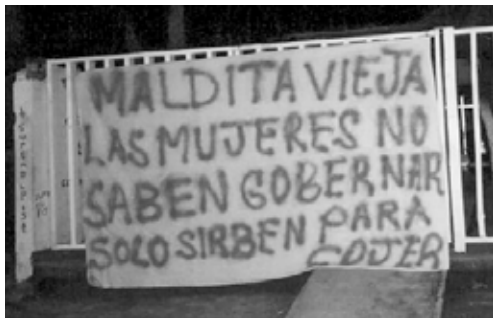 MALDITA VIEJA
LAS MUJERES NO
SABEN GOBERNAR
SOLO SIRBEN PARA
COJER